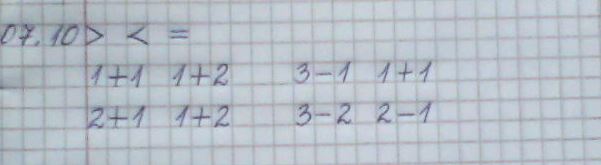 07.10 > < =
1+1 1+2 3-1 1+1
2+1 1+2 3-2 2-1